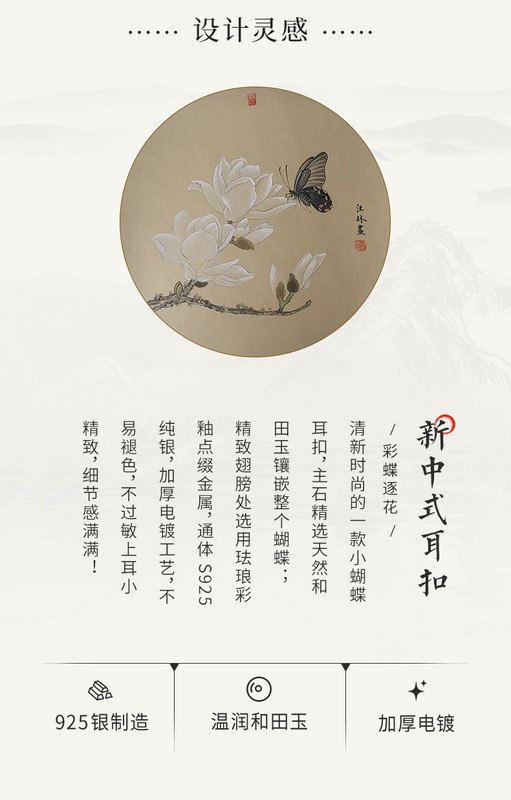 …… 设计灵感 ……
汪林画
新中式耳扣
/ 彩蝶逐花 /
清新时尚的一款小蝴蝶
耳扣，主石精选天然和
田玉镶嵌整个蝴蝶；
精致翅膀处选用珐琅彩
釉点缀金属，通体 S925
纯银，加厚电镀工艺，不
易褪色，不过敏上耳小
精致，细节感满满！
925银制造
温润和田玉
加厚电镀